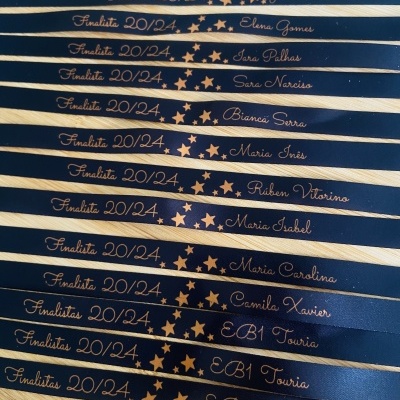 Finalista 20/24 Elena Gomes
Finalista 20/24 Iara Palhas
Finalista 20/24 Sara Narciso
Finalista 20/24 Bianca Serra
Finalista 20/24 Maria Inês
Finalista 20/24 Rúben Vitorino
Finalista 20/24 Maria Isabel
Finalista 20/24 Maria Carolina
Finalista 20/24 Camila Xavier
Finalistas 20/24 EB1 Touria
Finalistas 20/24 EB1 Touria
Finalistas 20/24